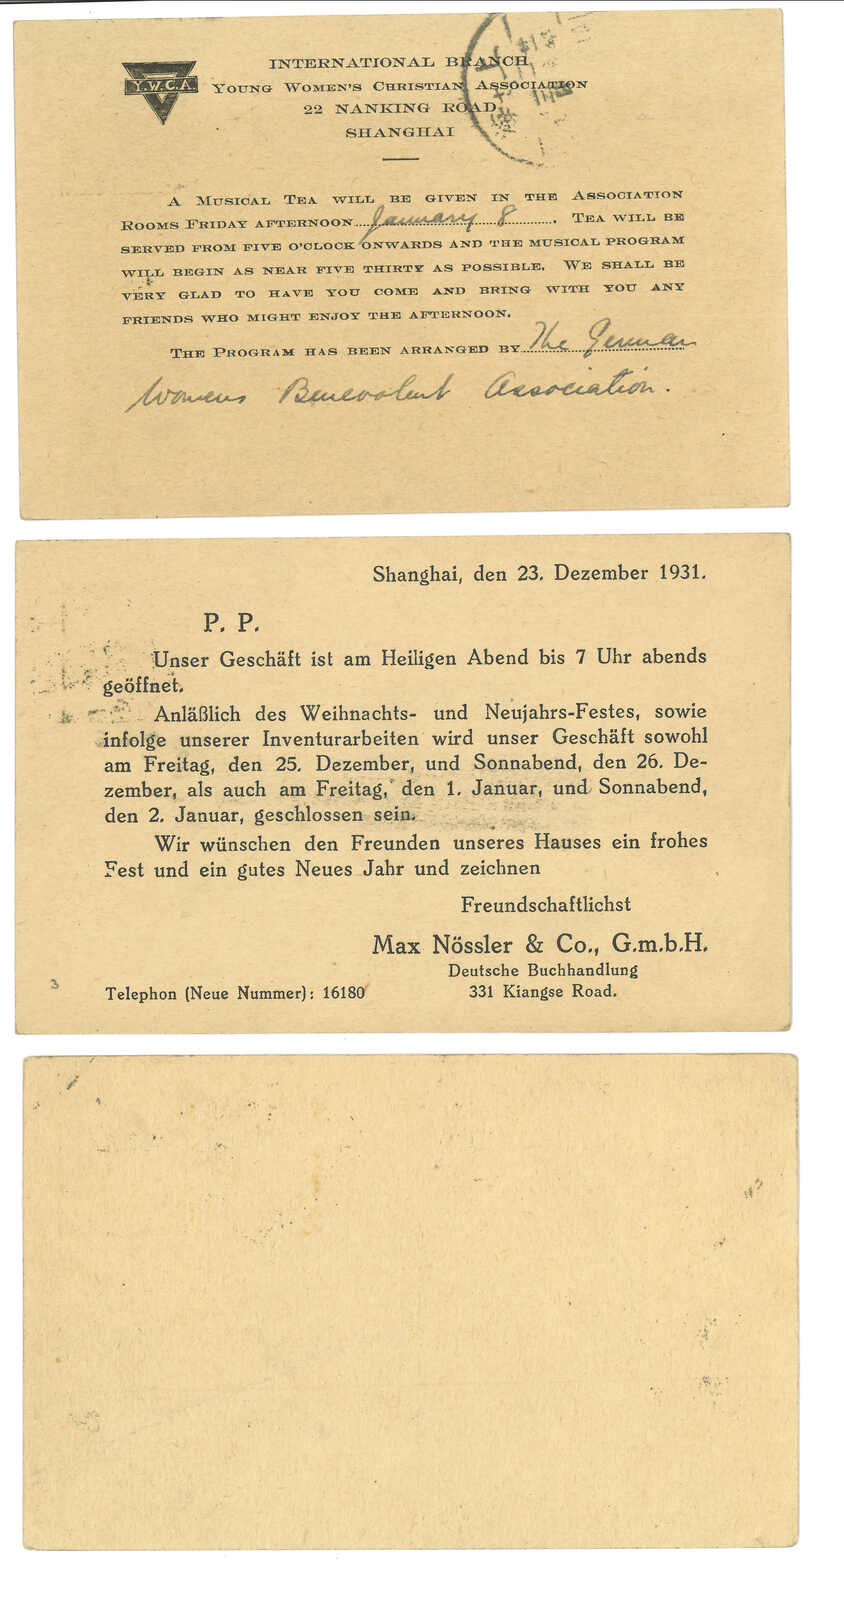 INTERNATIONAL BRANCH
Y.W.C.A.
YOUNG WOMEN'S CHRISTIAN ASSOCIATION
22 NANKING ROAD
SHANGHAI
A MUSICAL TEA WILL BE GIVEN IN THE ASSOCIATION
ROOMS FRIDAY AFTERNOON January 8. TEA WILL BE
SERVED FROM FIVE O'CLOCK ONWARDS AND THE MUSICAL PROGRAM
WILL BEGIN AS NEAR FIVE THIRTY AS POSSIBLE. WE SHALL BE
VERY GLAD TO HAVE YOU COME AND BRING WITH YOU ANY
FRIENDS WHO MIGHT ENJOY THE AFTERNOON.
THE PROGRAM HAS BEEN ARRANGED BY The German
Womens Benevolent Association.
Shanghai, den 23. Dezember 1931.
P. P.
Unser Geschäft ist am Heiligen Abend bis 7 Uhr abends
geöffnet.
Anläßlich des Weihnachts- und Neujahrs-Festes, sowie
infolge unserer Inventurarbeiten wird unser Geschäft sowohl
am Freitag, den 25. Dezember, und Sonnabend, den 26. De-
zember, als auch am Freitag, den 1. Januar, und Sonnabend,
den 2. Januar, geschlossen sein.
Wir wünschen den Freunden unseres Hauses ein frohes
Fest und ein gutes Neues Jahr und zeichnen
Freundschaftlichst
Max Nössler & Co., G.m.b.H.
Deutsche Buchhandlung
3
Telephon (Neue Nummer): 16180
331 Kiangse Road.